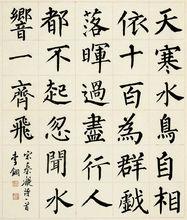 天寒水鳥自相
依十百為群戲
落暉過盡行人
都不起忽聞水
響一齊飛
宋秦觀詩一首
李